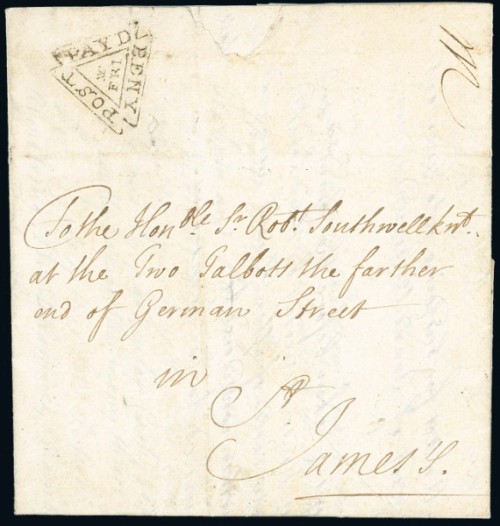 PAYD
PENY
POST
W
FRI
To the Hon.ble Sr. Robt. Southwell knt.
at the Two Talbotts the farther
end of German Street
in
St
James's.